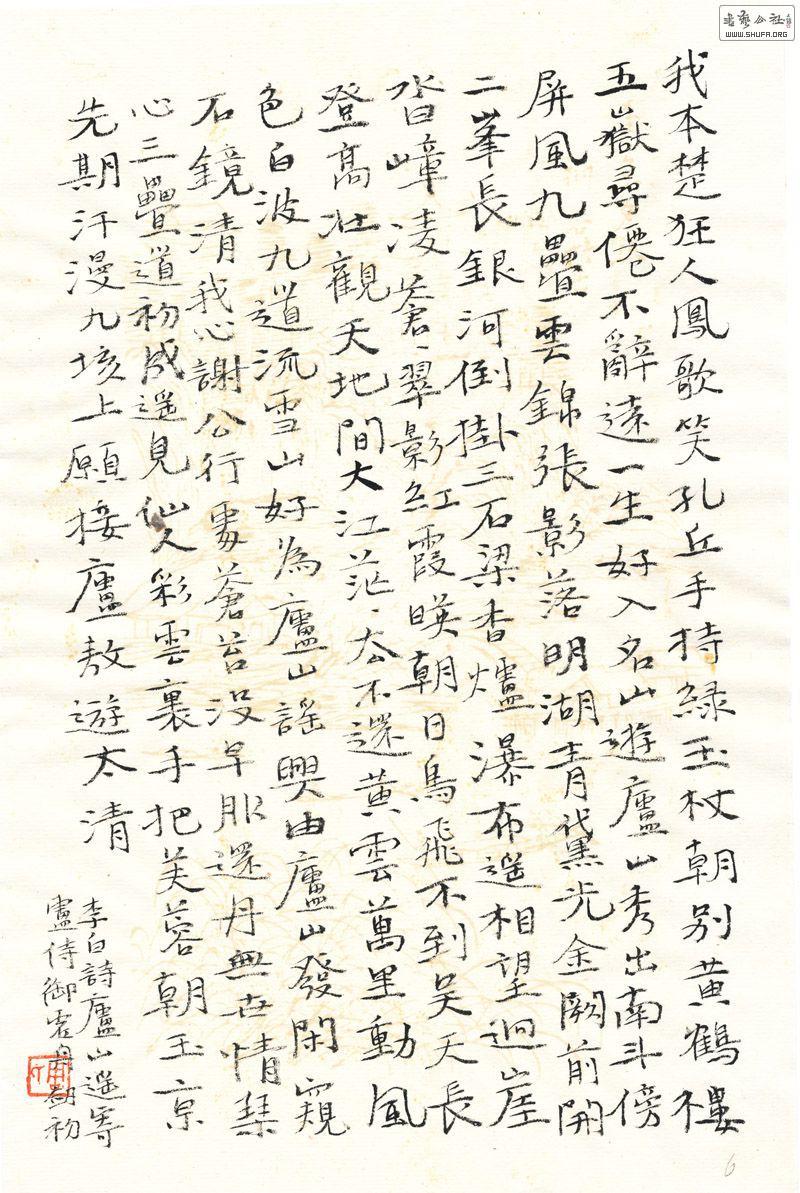 我本楚狂人鳳歌笑孔丘手持綠玉杖朝別黄鶴樓
五嶽尋僊不辭遠一生好入名山遊廬山秀出南斗傍
屏風九疊雲錦張影落明湖青黛光金闕前開
二峯長銀河倒掛三石梁香爐瀑布遥相望迴崖
沓嶂凌蒼蒼翠影紅霞暎朝日鳥飛不到吴天長
登高壯觀天地間大江茫茫去不還黄雲萬里動風
色白波九道流雪山好為廬山謡興由廬山發閑窺
石鏡清我心謝公行處蒼苔沒早服還丹無世情琴
心三疊道初成遥見仙人彩雲裏手把芙蓉朝玉京
先期汗漫九垓上願接廬敖遊太清
李白詩廬山遥寄
盧侍御虚舟
書藝公社
WWW.SHUFA.ORG
6